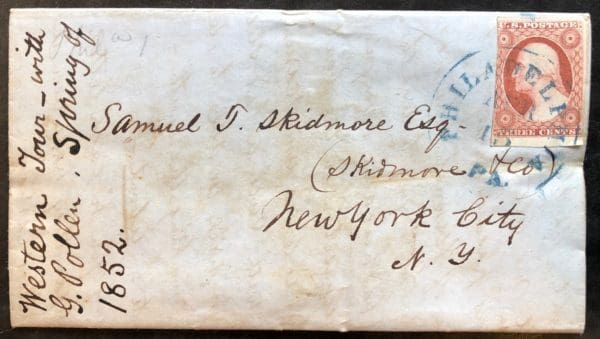 Western Tour - with
G. Pollen, Spring of
1852.
U.S. POSTAGE
THREE CENTS
PHILADELPHIA
PA.
Samuel T. Skidmore Esq-
(Skidmore & Co)
New York City
N. Y.